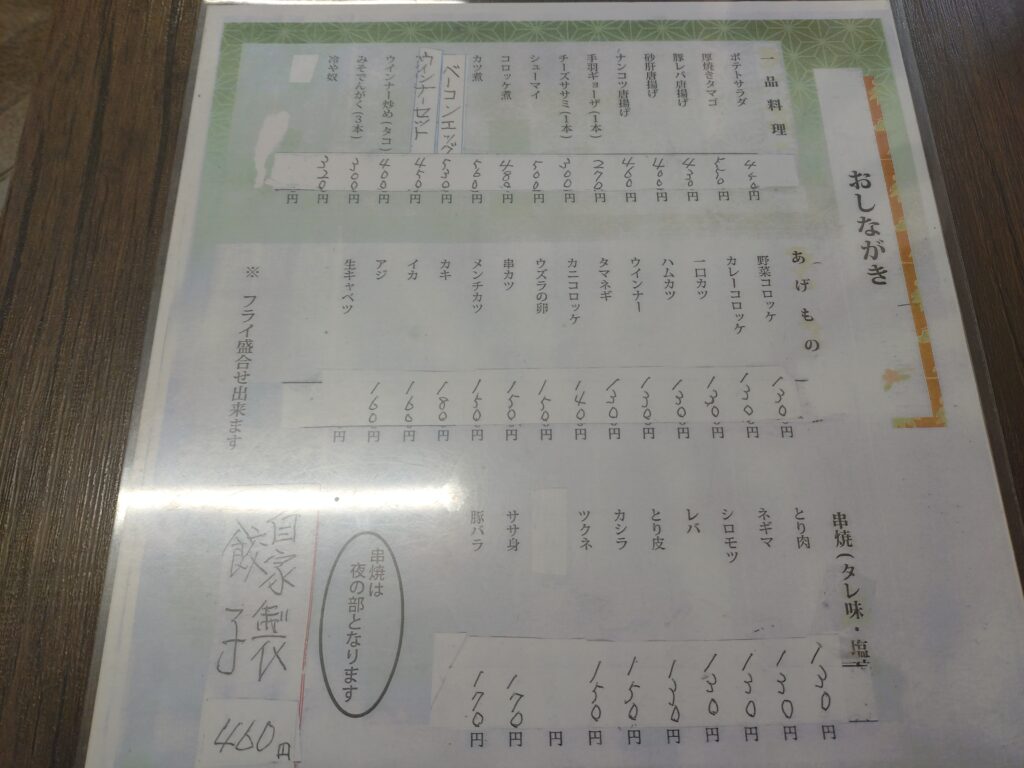 おしながき
一品料理
ポテトサラダ 440円
厚焼きタマゴ 550円
豚レバ唐揚げ 430円
砂肝唐揚げ 400円
ナンコツ唐揚げ 460円
手羽ギョーザ(1本) 270円
チーズササミ(1本) 300円
シューマイ 500円
コロッケ煮 480円
カツ煮 500円
ベーコンエッグ 530円
ウインナーセット 450円
ウインナー炒め(タコ) 400円
みそでんがく(3本) 300円
冷や奴 320円
円
あげもの
野菜コロッケ 130円
カレーコロッケ 130円
一口カツ 130円
ハムカツ 130円
ウインナー 130円
タマネギ 130円
カニコロッケ 140円
ウズラの卵 150円
串カツ 150円
メンチカツ 150円
カキ 180円
イカ 160円
アジ 160円
生キャベツ 円
※ フライ盛合せ出来ます
串焼(タレ味・塩
とり肉 130円
ネギマ 130円
シロモツ 130円
レバ 130円
とり皮 130円
カシラ 150円
ツクネ 150円
円
ササ身 170円
豚バラ 170円
串焼は
夜の部となります
自家製
餃子
460円